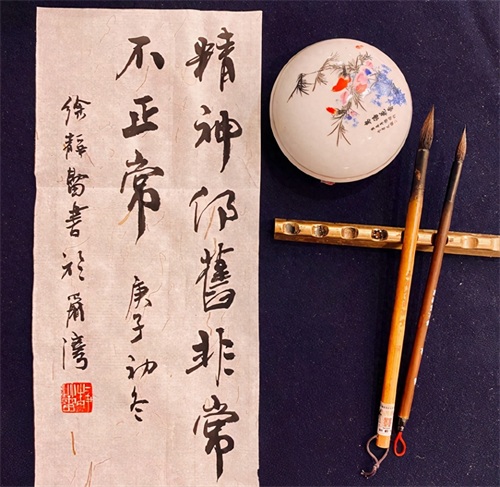 精神仍舊非常
不正常
庚子初冬
徐靜蕾書於爾灣